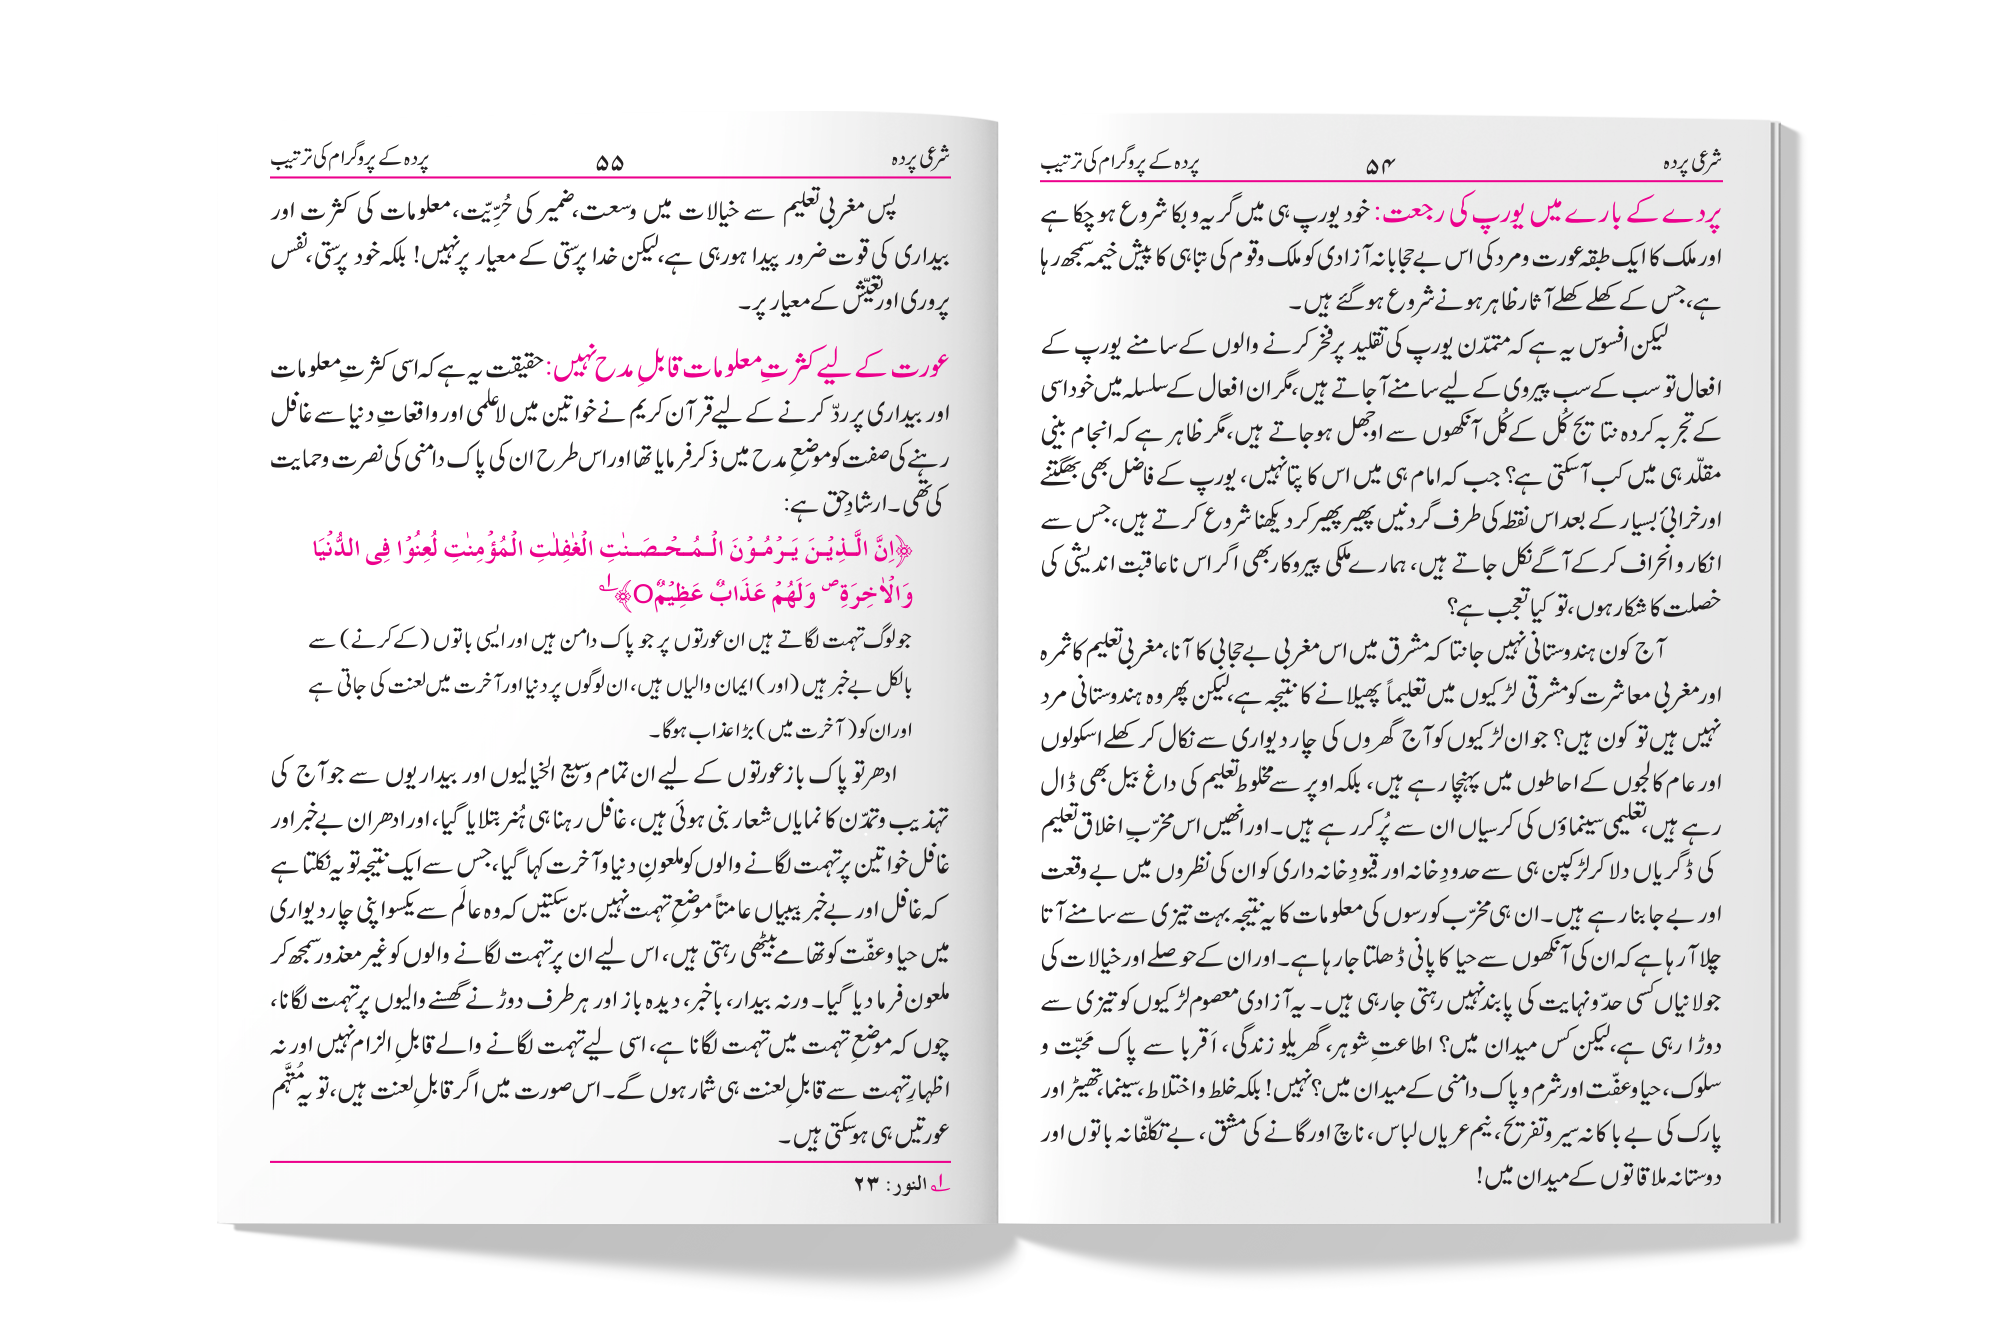 شرعی پردہ ۵۴ پردہ کے پروگرام کی ترتیب
پردے کے بارے میں یورپ کی رجعت: خود یورپ ہی میں گریہ و بکا شروع ہو چکا ہے
اور ملک کا ایک طبقہ عورت و مرد کی اس بے حجابانہ آزادی کو ملک و قوم کی تباہی کا پیش خیمہ سمجھ رہا
ہے، جس کے کھلے کھلے آثار ظاہر ہونے شروع ہو گئے ہیں۔
لیکن افسوس یہ ہے کہ متمدّن یورپ کی تقلید پر فخر کرنے والوں کے سامنے یورپ کے
افعال تو سب کے سب پیروی کے لیے سامنے آجاتے ہیں، مگر ان افعال کے سلسلہ میں خود اسی
کے تجربہ کردہ نتایج کُل کے کُل آنکھوں سے اوجھل ہوجاتے ہیں، مگر ظاہر ہے کہ انجام بینی
مقلّد ہی میں کب آسکتی ہے؟ جب کہ امام ہی میں اس کا پتا نہیں، یورپ کے فاضل بھی بھگتنے
اور خرابیٔ بسیار کے بعد اس نقطہ کی طرف گردنیں پھیر پھیر کر دیکھنا شروع کرتے ہیں، جس سے
انکار و انحراف کرکے آگے نکل جاتے ہیں، ہمارے ملکی پیروکار بھی اگر اس ناعاقبت اندیشی کی
خصلت کا شکار ہوں، تو کیا تعجب ہے؟
آج کون ہندوستانی نہیں جانتا کہ مشرق میں اس مغربی بے حجابی کا آنا، مغربی تعلیم کا ثمرہ
اور مغربی معاشرت کو مشرقی لڑکیوں میں تعلیماً پھیلانے کا نتیجہ ہے، لیکن پھر وہ ہندوستانی مرد
نہیں ہیں تو کون ہیں؟ جو ان لڑکیوں کو آج گھروں کی چار دیواری سے نکال کر کھلے اسکولوں
اور عام کالجوں کے احاطوں میں پہنچا رہے ہیں، بلکہ اوپر سے مخلوط تعلیم کی داغ بیل بھی ڈال
رہے ہیں، تعلیمی سینماؤں کی کرسیاں ان سے پُر کر رہے ہیں۔ اور انھیں اس مخرّبِ اخلاق تعلیم
کی ڈگریاں دلا کر لڑکپن ہی سے حدودِ خانہ اور قیودِ خانہ داری کو ان کی نظروں میں بے وقعت
اور بے جا بنا رہے ہیں۔ ان ہی مخرّب کورسوں کی معلومات کا یہ نتیجہ بہت تیزی سے سامنے آتا
چلا آرہا ہے کہ ان کی آنکھوں سے حیا کا پانی ڈھلتا جارہا ہے۔ اور ان کے حوصلے اور خیالات کی
جولانیاں کسی حدّ و نہایت کی پابند نہیں رہتی جارہی ہیں۔ یہ آزادی معصوم لڑکیوں کو تیزی سے
دوڑا رہی ہے، لیکن کس میدان میں؟ اطاعتِ شوہر، گھریلو زندگی، اَقربا سے پاک محبّت و
سلوک، حیا و عفّت اور شرم و پاک دامنی کے میدان میں؟ نہیں! بلکہ خلط و اختلاط، سینما، تھیٹر اور
پارک کی بے باکانہ سیر و تفریح، نیم عریاں لباس، ناچ اور گانے کی مشق، بے تکلّفانہ باتوں اور
دوستانہ ملاقاتوں کے میدان میں!
شرعی پردہ ۵۵ پردہ کے پروگرام کی ترتیب
پس مغربی تعلیم سے خیالات میں وسعت، ضمیر کی حُرِّیّت، معلومات کی کثرت اور
بیداری کی قوت ضرور پیدا ہورہی ہے، لیکن خدا پرستی کے معیار پر نہیں! بلکہ خود پرستی، نفس
پروری اور تعیّش کے معیار پر۔
عورت کے لیے کثرتِ معلومات قابلِ مدح نہیں: حقیقت یہ ہے کہ اسی کثرتِ معلومات
اور بیداری پر ردّ کرنے کے لیے قرآن کریم نے خواتین میں لاعلمی اور واقعاتِ دنیا سے غافل
رہنے کی صفت کو موضعِ مدح میں ذکر فرمایا تھا اور اس طرح ان کی پاک دامنی کی نصرت و حمایت
کی تھی۔ ارشادِ حق ہے:
﴿اِنَّ الَّذِیْنَ یَرْمُوْنَ الْمُحْصَنٰتِ الْغٰفِلٰتِ الْمُؤْمِنٰتِ لُعِنُوْا فِی الدُّنْیَا
وَالْاٰخِرَةِ ۖ وَلَهُمْ عَذَابٌ عَظِیْمٌ○﴾ ۱؎
جو لوگ تہمت لگاتے ہیں ان عورتوں پر جو پاک دامن ہیں اور ایسی باتوں (کے کرنے) سے
بالکل بے خبر ہیں (اور) ایمان والیاں ہیں، ان لوگوں پر دنیا اور آخرت میں لعنت کی جاتی ہے
اور ان کو (آخرت میں) بڑا عذاب ہوگا۔
ادھر تو پاک باز عورتوں کے لیے ان تمام وسیع الخیالیوں اور بیداریوں سے جو آج کی
تہذیب و تمدّن کا نمایاں شعار بنی ہوئی ہیں، غافل رہنا ہی ہُنر بتلایا گیا، اور ادھر ان بے خبر اور
غافل خواتین پر تہمت لگانے والوں کو ملعونِ دنیا و آخرت کہا گیا، جس سے ایک نتیجہ تو یہ نکلتا ہے
کہ غافل اور بے خبر بیبیاں عامتاً موضعِ تہمت نہیں بن سکتیں کہ وہ عالَم سے یکسو اپنی چار دیواری
میں حیا و عفّت کو تھامے بیٹھی رہتی ہیں، اس لیے ان پر تہمت لگانے والوں کو غیر معذور سمجھ کر
ملعون فرما دیا گیا۔ ورنہ بیدار، باخبر، دیدہ باز اور ہر طرف دوڑنے گھسنے والیوں پر تہمت لگانا،
چوں کہ موضعِ تہمت میں تہمت لگانا ہے، اسی لیے تہمت لگانے والے قابلِ الزام نہیں اور نہ
اظہارِ تہمت سے قابلِ لعنت ہی شمار ہوں گے۔ اس صورت میں اگر قابلِ لعنت ہیں، تو یہ مُتَّہَم
عورتیں ہی ہوسکتی ہیں۔
۱؎ النور: ۲۳